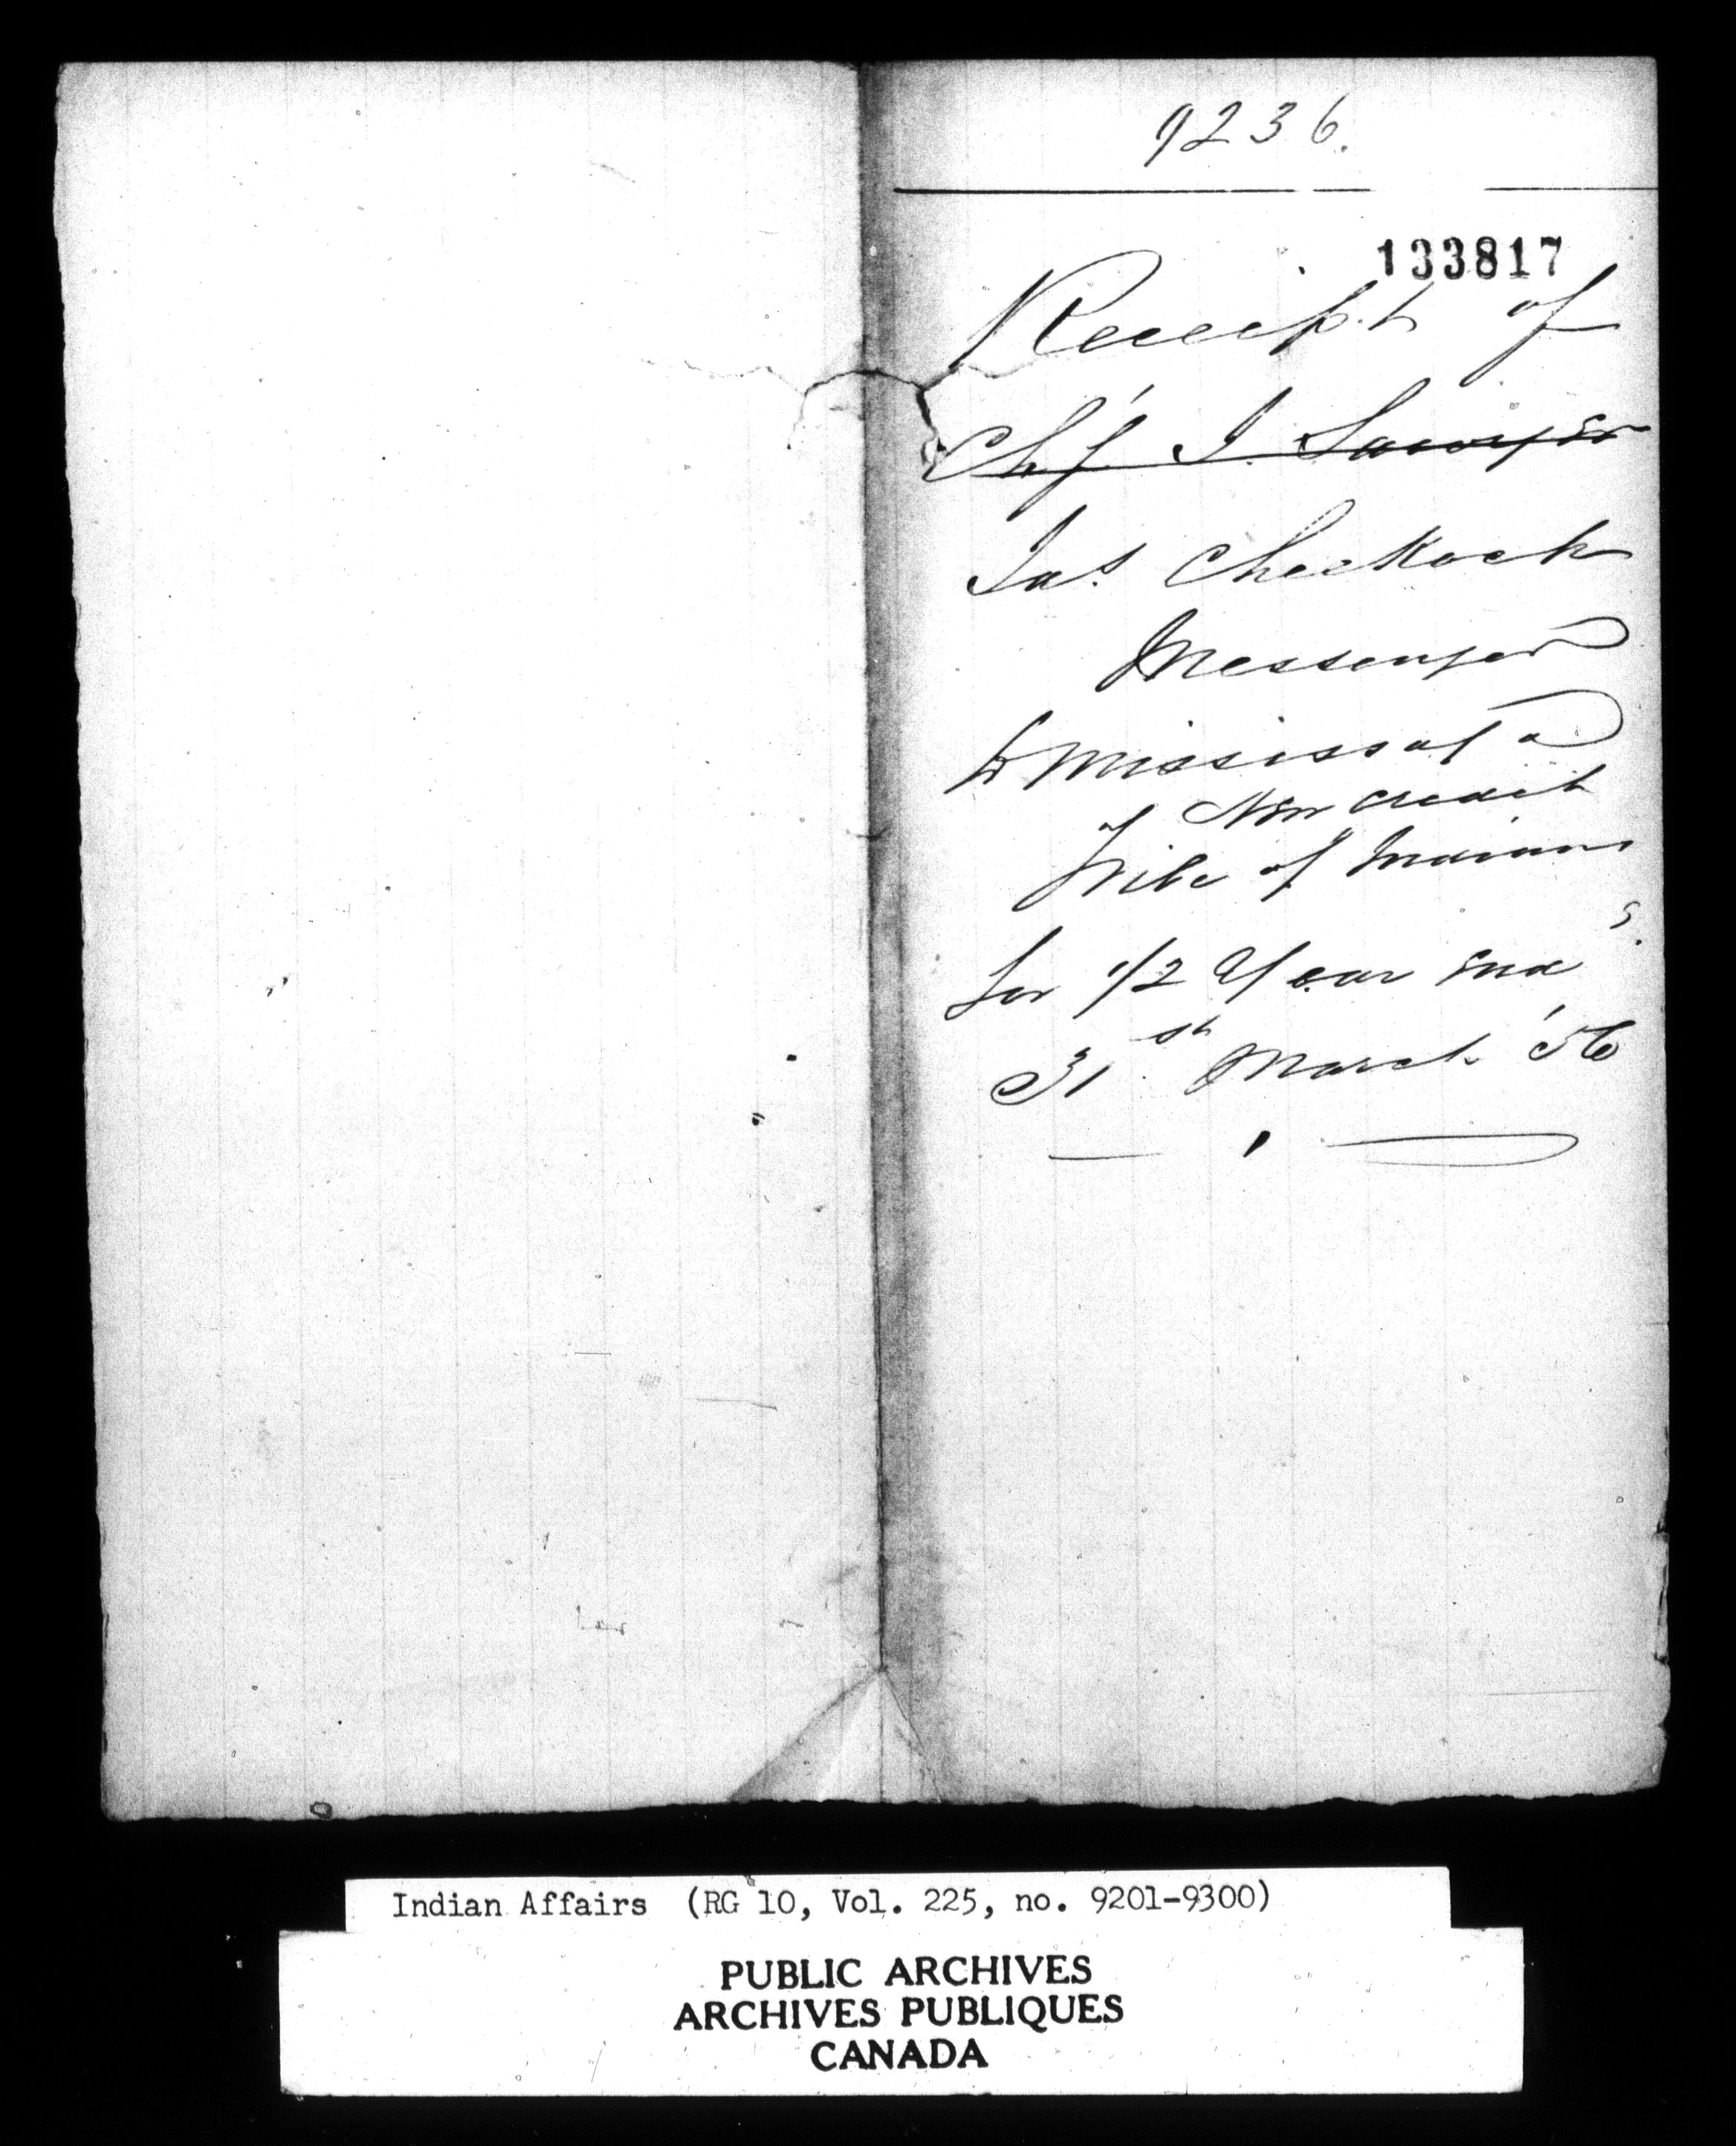 9236.
133817
Receipt of
Chf. J. Sawyer
Jas. Cheekock
Messenger
to Mississaga
of New Credit
Tribe of Indians
for 1/2 Year End
31st March '56
Indian Affairs (RG 10, Vol. 225, no. 9201-9300)
PUBLIC ARCHIVES
ARCHIVES PUBLIQUES
CANADA